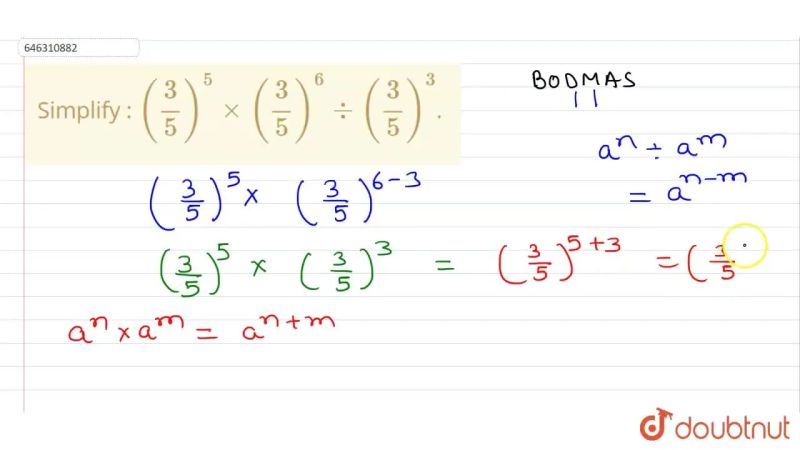 646310882
Simplify : (3/5)^5 × (3/5)^6 ÷ (3/5)^3.
BODMAS
a^n ÷ a^m
= a^(n-m)
(3/5)^5 × (3/5)^(6-3)
(3/5)^5 × (3/5)^3 = (3/5)^(5+3) = (3/5
a^n × a^m = a^(n+m)
doubtnut